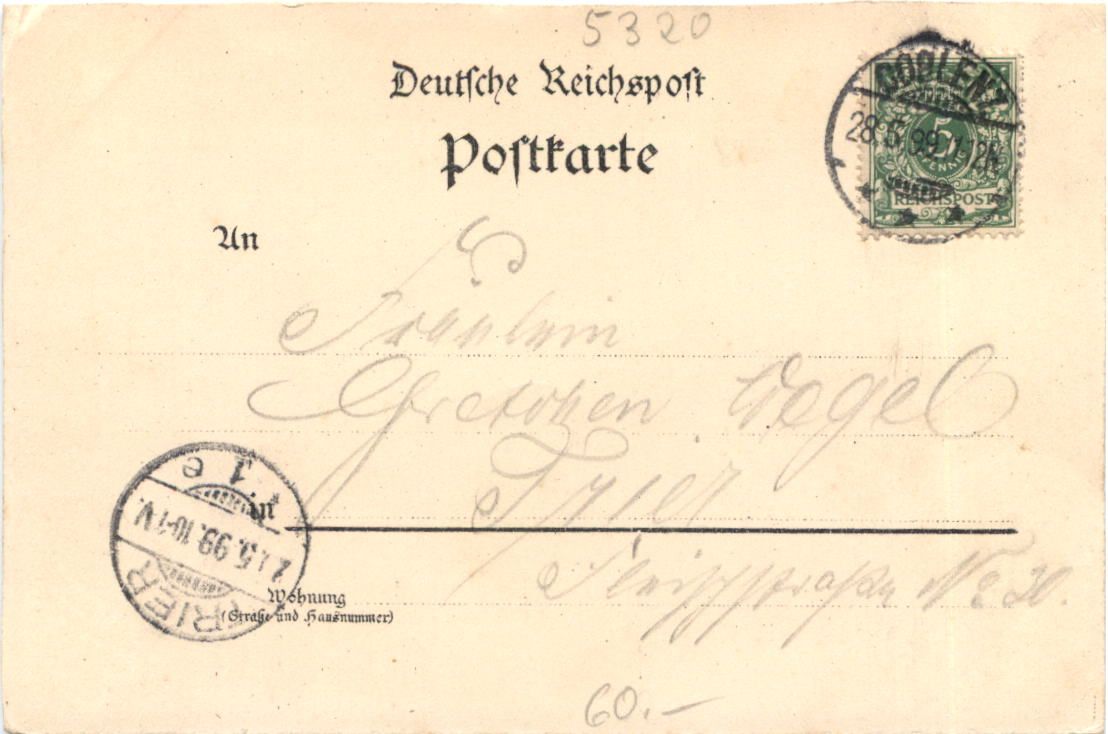 5320
Deutsche Reichspost
Postkarte
COBLENZ
28.5.99
5
PFENNIG
REICHSPOST
An
Fräulein
Gretchen Vogel
Trier
in
Fleischstraße No 30.
Wohnung
(Straße und Hausnummer)
TRIER
5.99.10-11V.
1 e
60.-